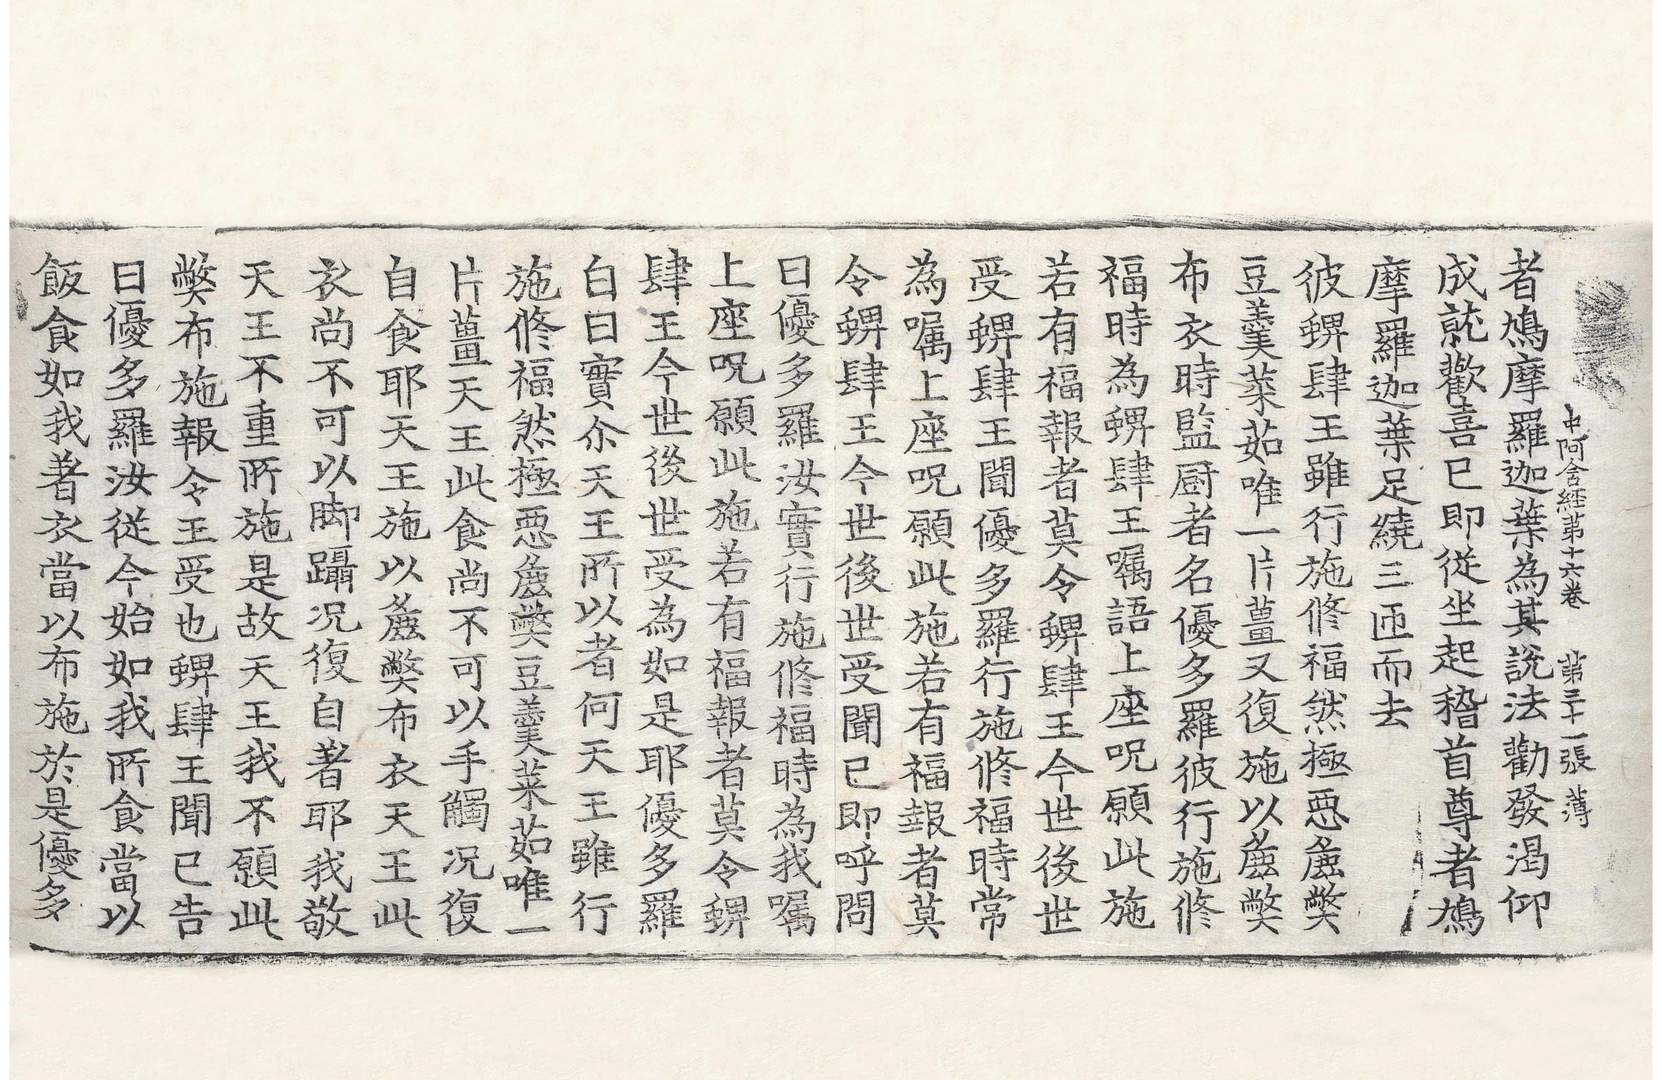 中阿含経苐十六巻　苐三十一張　薄
者鳩摩羅迦葉為其說法勸發渴仰
成就歡喜已即從坐起稽首尊者鳩
摩羅迦葉足繞三匝而去
彼蜱肆王雖行施修福然極惡麁弊
豆羹菜茹唯一片薑又復施以麁弊
布衣時監厨者名優多羅彼行施修
福時為蜱肆王嘱語上座呪願此施
若有福報者莫令蜱肆王今世後世
受蜱肆王聞優多羅行施修福時常
為嘱上座呪願此施若有福報者莫
令蜱肆王今世後世受聞已即呼問
曰優多羅汝實行施修福時為我嘱
上座呪願此施若有福報者莫令蜱
肆王今世後世受為如是耶優多羅
白曰實尒天王所以者何天王雖行
施修福然極惡麁弊豆羹菜茹唯一
片薑天王此食尚不可以手觸况復
自食耶天王施以麁弊布衣天王此
衣尚不可以脚躡况復自著耶我敬
天王不重所施是故天王我不願此
弊布施報令王受也蜱肆王聞已告
曰優多羅汝從今始如我所食當以
飯食如我著衣當以布施於是優多